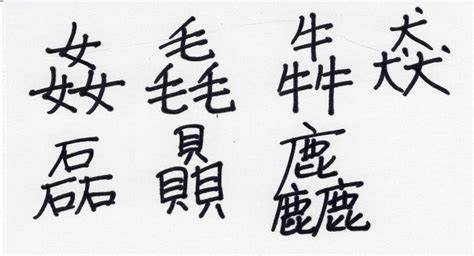 姦 毳 犇 猋
磊 贔 麤